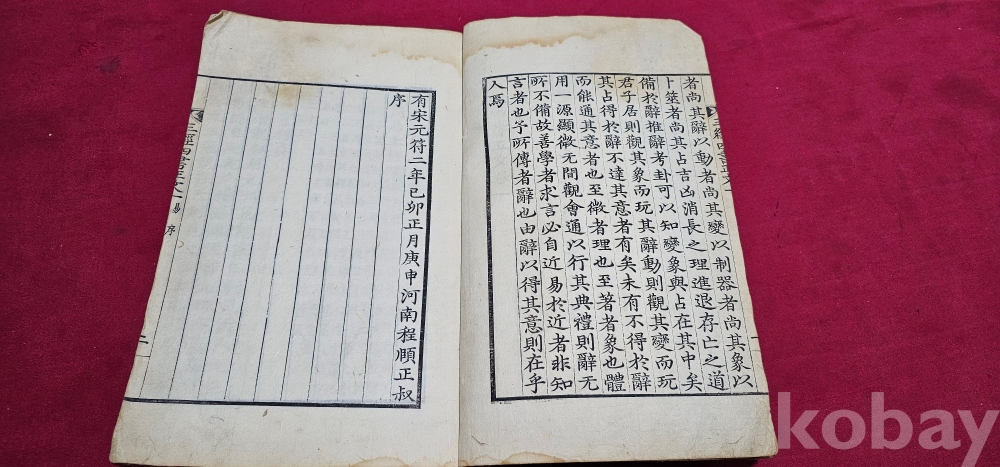 者尚其辭以動者尚其變以制器者尚其象以
卜筮者尚其占吉凶消長之理進退存亡之道
備於辭推辭考卦可以知變象與占在其中矣
君子居則觀其象而玩其辭動則觀其變而玩
其占得於辭不達其意者有矣未有不得於辭
而能通其意者也至微者理也至著者象也體
用一源顯微无間觀會通以行其典禮則辭无
所不備故善學者求言必自近易於近者非知
言者也予所傳者辭也由辭以得其意則在乎
人焉
三經四書正文 一
一
有宋元符二年己卯正月庚申河南程頤正叔
序
三經四書正文 一 易序
二
kobay